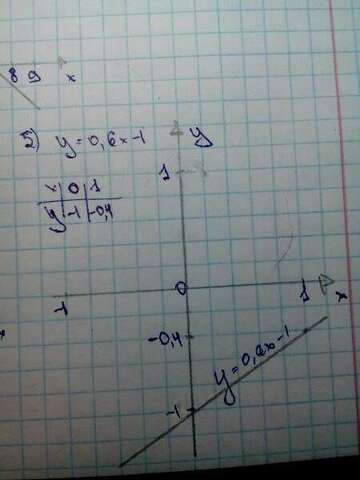 8 9 x
5) y = 0,6x-1
y
x 0 1
y -1 -0,4
1
-1 0 1 x
-0,4
y=0,6x-1
-1